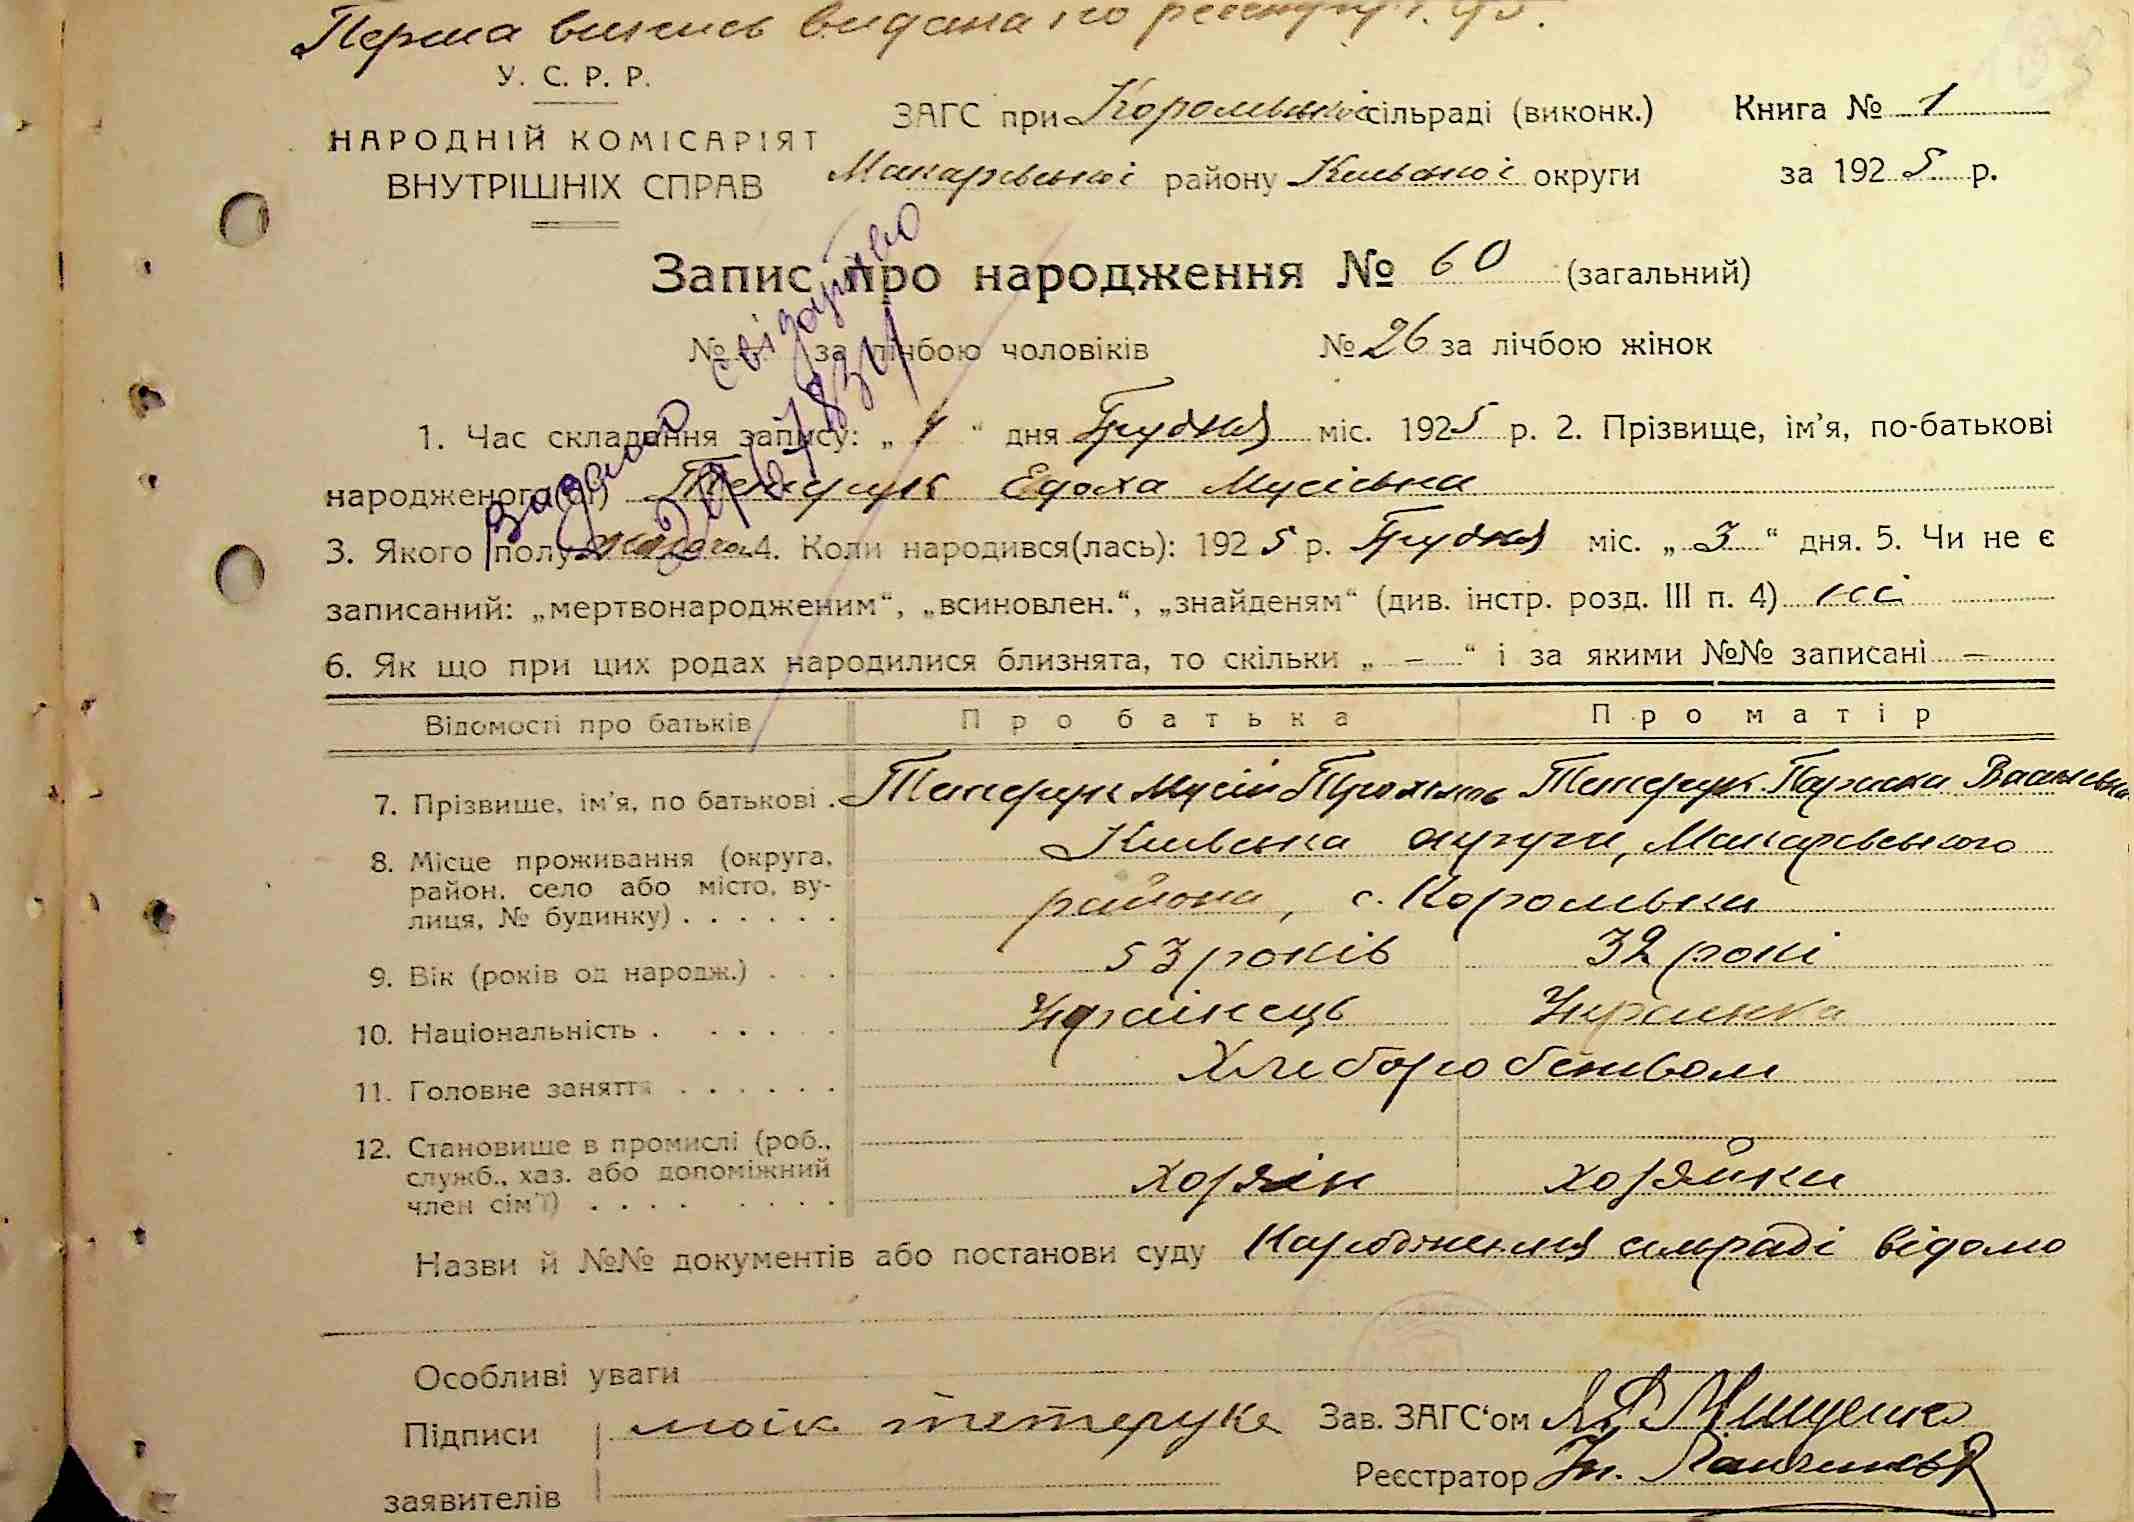 Перша випись видана по реєстру
У. С. Р. Р.
НАРОДНІЙ КОМІСАРІЯТ
ВНУТРІШНІХ СПРАВ
ЗАГС при Королівській сільраді (виконк.) Книга № 1
Макарівської району Київської округи за 1925 р.
Запис про народження № 60 (загальний)
№ за лічбою чоловіків № 26 за лічбою жінок
видано свідоцтво
1. Час складання запису: „4“ дня Грудня міс. 1925 р. 2. Прізвище, ім'я, по-батькові
народженого(ої) Тетерук Едоха Мусіївна
3. Якого полу жіноча 4. Коли народився(лась): 1925 р. Грудня міс. „3“ дня. 5. Чи не є
записаний: „мертвонародженим“, „всиновлен.“, „знайденям“ (див. інстр. розд. III п. 4) ні
6. Як що при цих родах народилися близнята, то скільки „ – “ і за якими №№ записані –
Відомості про батьків Про батька Про матір
7. Прізвище, ім'я, по батькові . Тетерук Мусій Трохим. Тетерук Париска Васильівна
8. Місце проживання (округа, район, село або місто, вулиця, № будинку) . . . . . . Київська округи, Макарівського
района, с. Королівка
9. Вік (років од народж.) . . . 53 років 32 рокі
10. Національність . . . . . Українець Украінка
11. Головне заняття . . . . . . Хліборобством
12. Становище в промислі (роб., служб., хаз. або допоміжний член сім'ї) . . . . . . . . хозяїн хозяйка
Назви й №№ документів або постанови суду Народження сільраді відомо
Особливі уваги
Підписи моїк тетеруке Зав. ЗАГС'ом Мищенко
заявителів Реєстратор